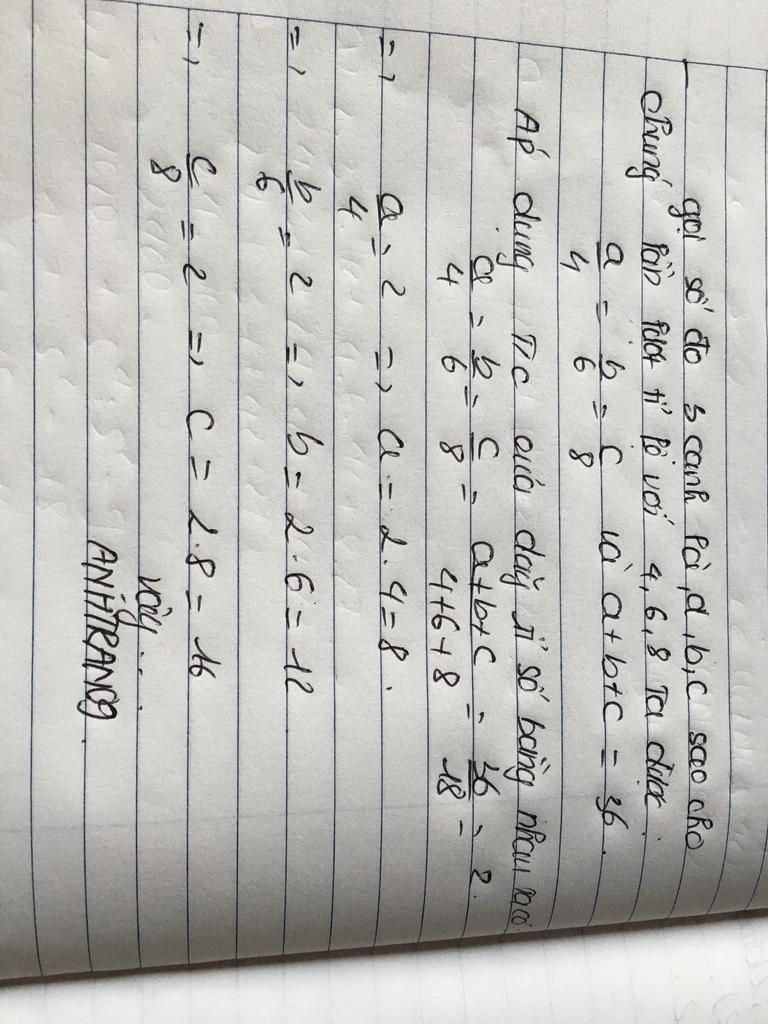 gọi số đo 3 cạnh là, a, b, c sao cho
chúng lần lượt tỉ lệ với 4, 6, 8 Ta được.
a/4 = b/6 = c/8 và a+b+c = 36.
Áp dụng T/c của dãy tỉ số bằng nhau ta có
a/4 = b/6 = c/8 = a+b+c/4+6+8 = 36/18 = 2.
=> a/4 = 2 => a = 2.4 = 8.
=> b/6 = 2 => b = 2.6 = 12
=> c/8 = 2 => c = 2.8 = 16
vậy....
ANHTRANG